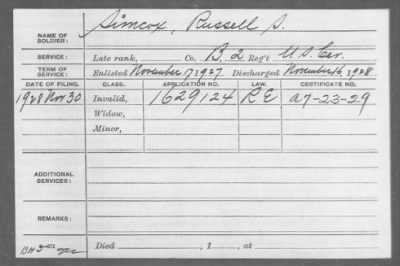 NAME OF SOLDIER: Simcox, Russell S.
SERVICE: Late rank, Co. B. 2 Reg't U S Cav.
TERM OF SERVICE: Enlisted November 17, 1927, Discharged November 16, 1928
DATE OF FILING. CLASS. APPLICATION NO. LAW. CERTIFICATE NO.
1928 Nov 30 Invalid, 1629124 R E A7-23-29
Widow,
Minor,
ADDITIONAL SERVICES:
REMARKS:
Died , 1 , at